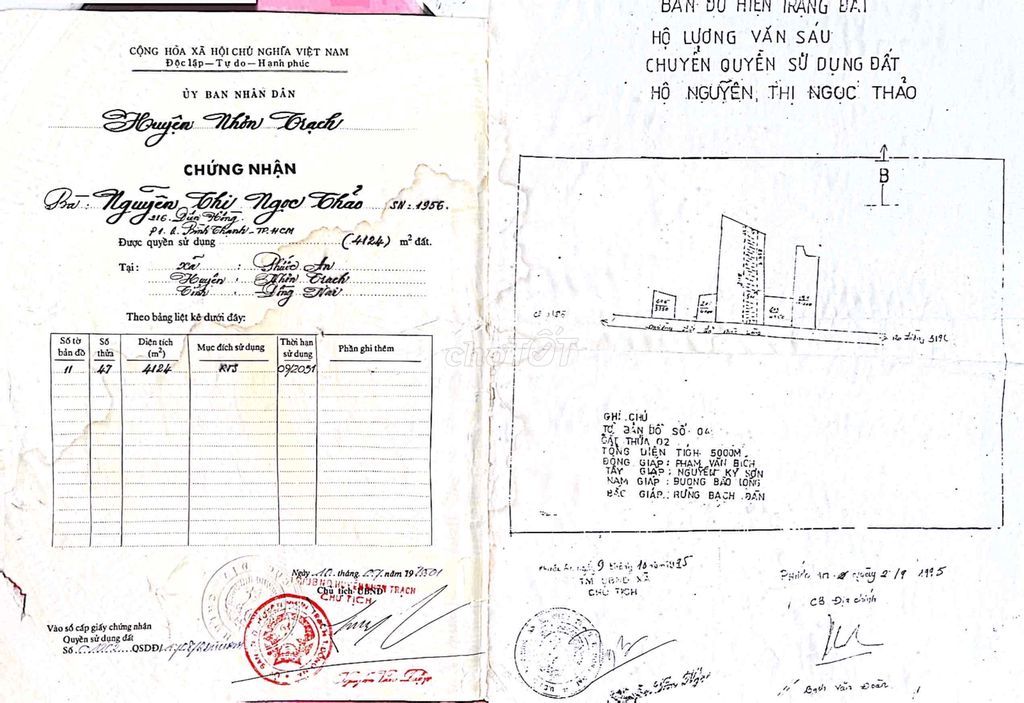 CỘNG HÒA XÃ HỘI CHỦ NGHĨA VIỆT NAM
Độc lập — Tự do — Hạnh phúc
ỦY BAN NHÂN DÂN
Huyện Nhơn Trạch
CHỨNG NHẬN
Bà : Nguyễn Thị Ngọc Thảo SN : 1956.
P1. Q. Bình Thạnh - TP. HCM
Được quyền sử dụng (4124) m² đất.
Tại : Xã : Phước An
Huyện : Nhơn Trạch
Tỉnh : Đồng Nai
Theo bảng liệt kê dưới đây:
Số tờ bản đồ Số thửa Diện tích (m²) Mục đích sử dụng Thời hạn sử dụng Phần ghi thêm
11 47 4124 09/2051
Ngày tháng năm
CHỦ TỊCH
Chủ tịch UBND
Vào sổ cấp giấy chứng nhận
Quyền sử dụng đất
Số QSDĐ/
BẢN ĐỒ HIỆN TRẠNG ĐẤT
HỘ LƯƠNG VĂN SÁU
CHUYỂN QUYỀN SỬ DỤNG ĐẤT
HỘ NGUYỄN THỊ NGỌC THẢO
B
chợTỐT
GHI CHÚ
TỜ BẢN ĐỒ SỐ 04
ĐẤT THỬA 02
TỔNG DIỆN TÍCH 5000M
ĐÔNG GIÁP : PHẠM VĂN BÍCH
TÂY GIÁP : NGUYỄN KỲ SƠN
NAM GIÁP : ĐƯỜNG BÀO LONG
BẮC GIÁP : RỪNG BẠCH ĐÀN
TM UBND XÃ
CHỦ TỊCH
Phước An ngày 2/9 1995
CB Địa chính
Bạch Văn Đoàn